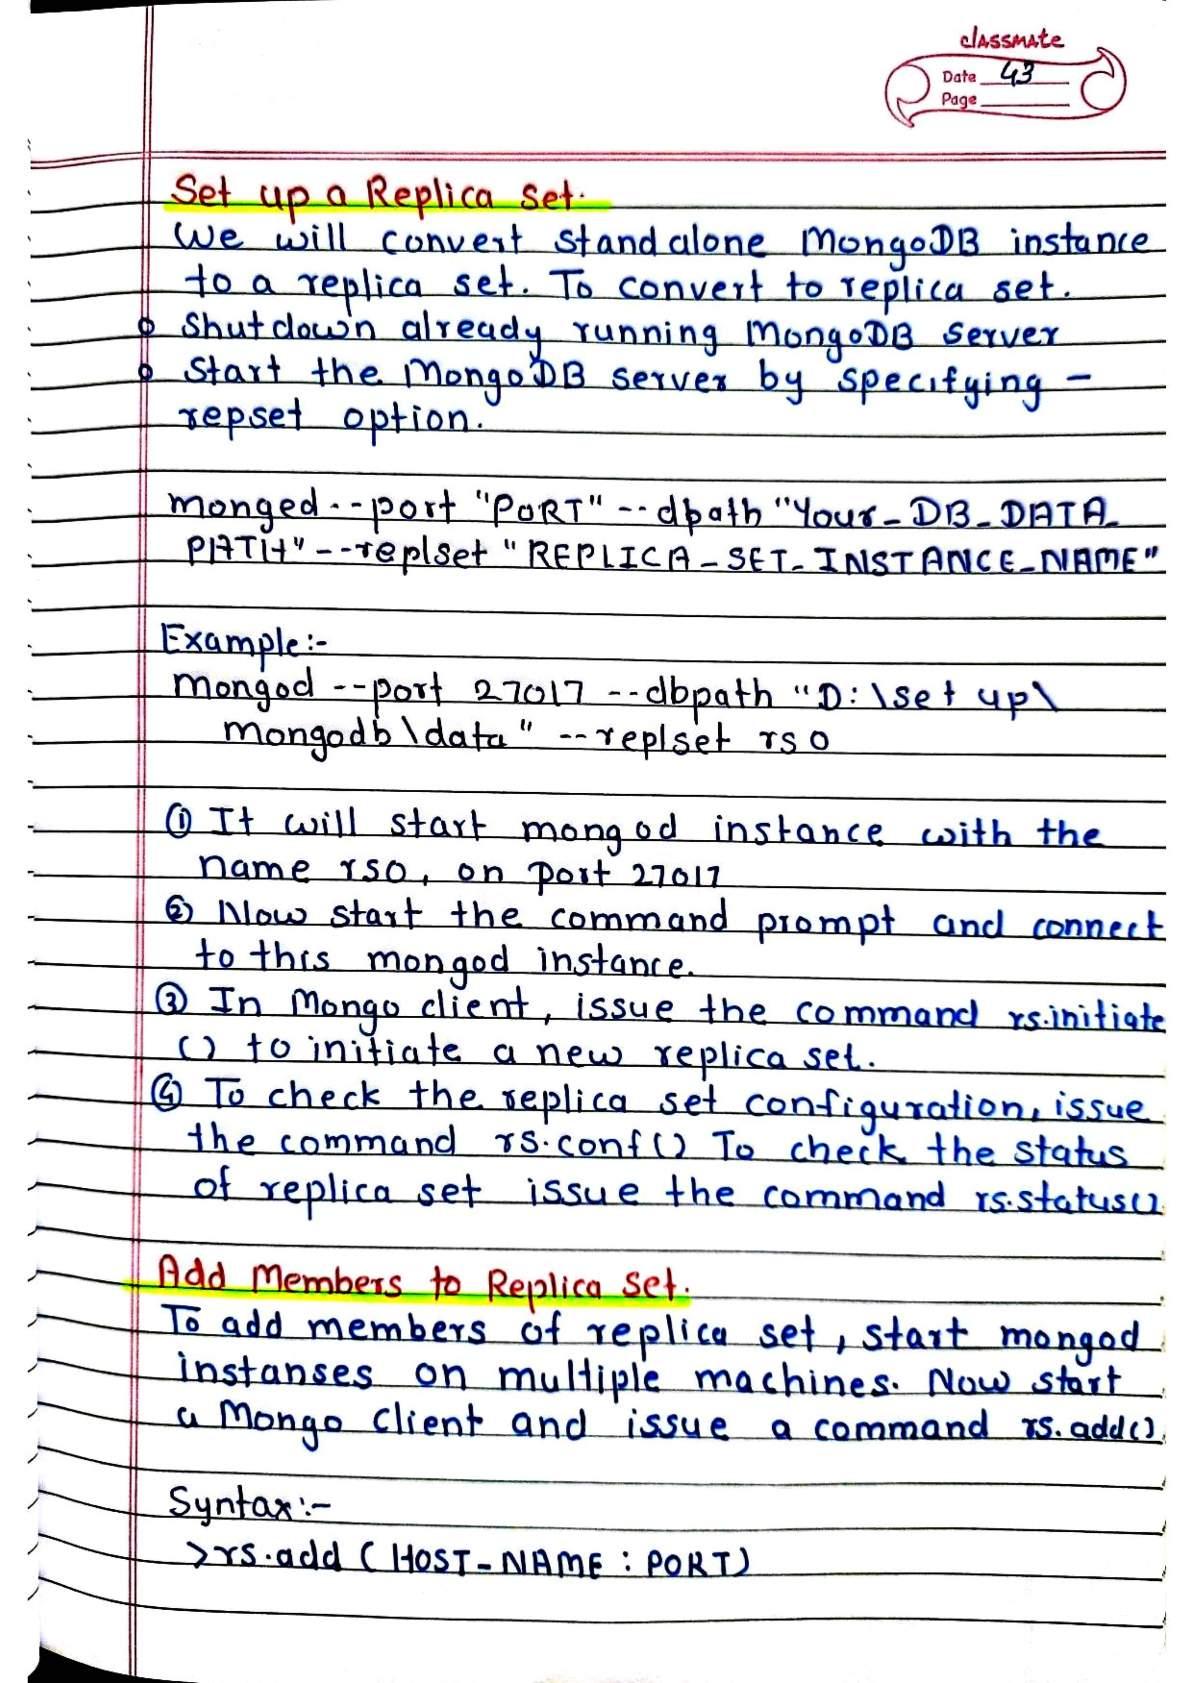 classmate
Date 43
Page
Set up a Replica set.
We will convert standalone MongoDB instance
to a replica set. To convert to replica set.
Shutdown already running MongoDB server
Start the MongoDB server by specifying -
repset option.
monged --port "PORT" -- dbath "Your_DB_DATA_
PATH" --replset "REPLICA_SET_INSTANCE_NAME"
Example:-
mongod --port 27017 --dbpath "D:\set up\
mongodb\data" --replset rs0
① It will start mongod instance with the
name rs0, on port 27017
② Now start the command prompt and connect
to this mongod instance.
③ In Mongo client, issue the command rs.initiate
() to initiate a new replica set.
④ To check the replica set configuration, issue
the command rs.conf() To check the status
of replica set issue the command rs.status()
Add Members to Replica set.
To add members of replica set, start mongod
instanses on multiple machines. Now start
a Mongo client and issue a command rs.add()
Syntax:-
>rs.add (HOST_NAME : PORT)